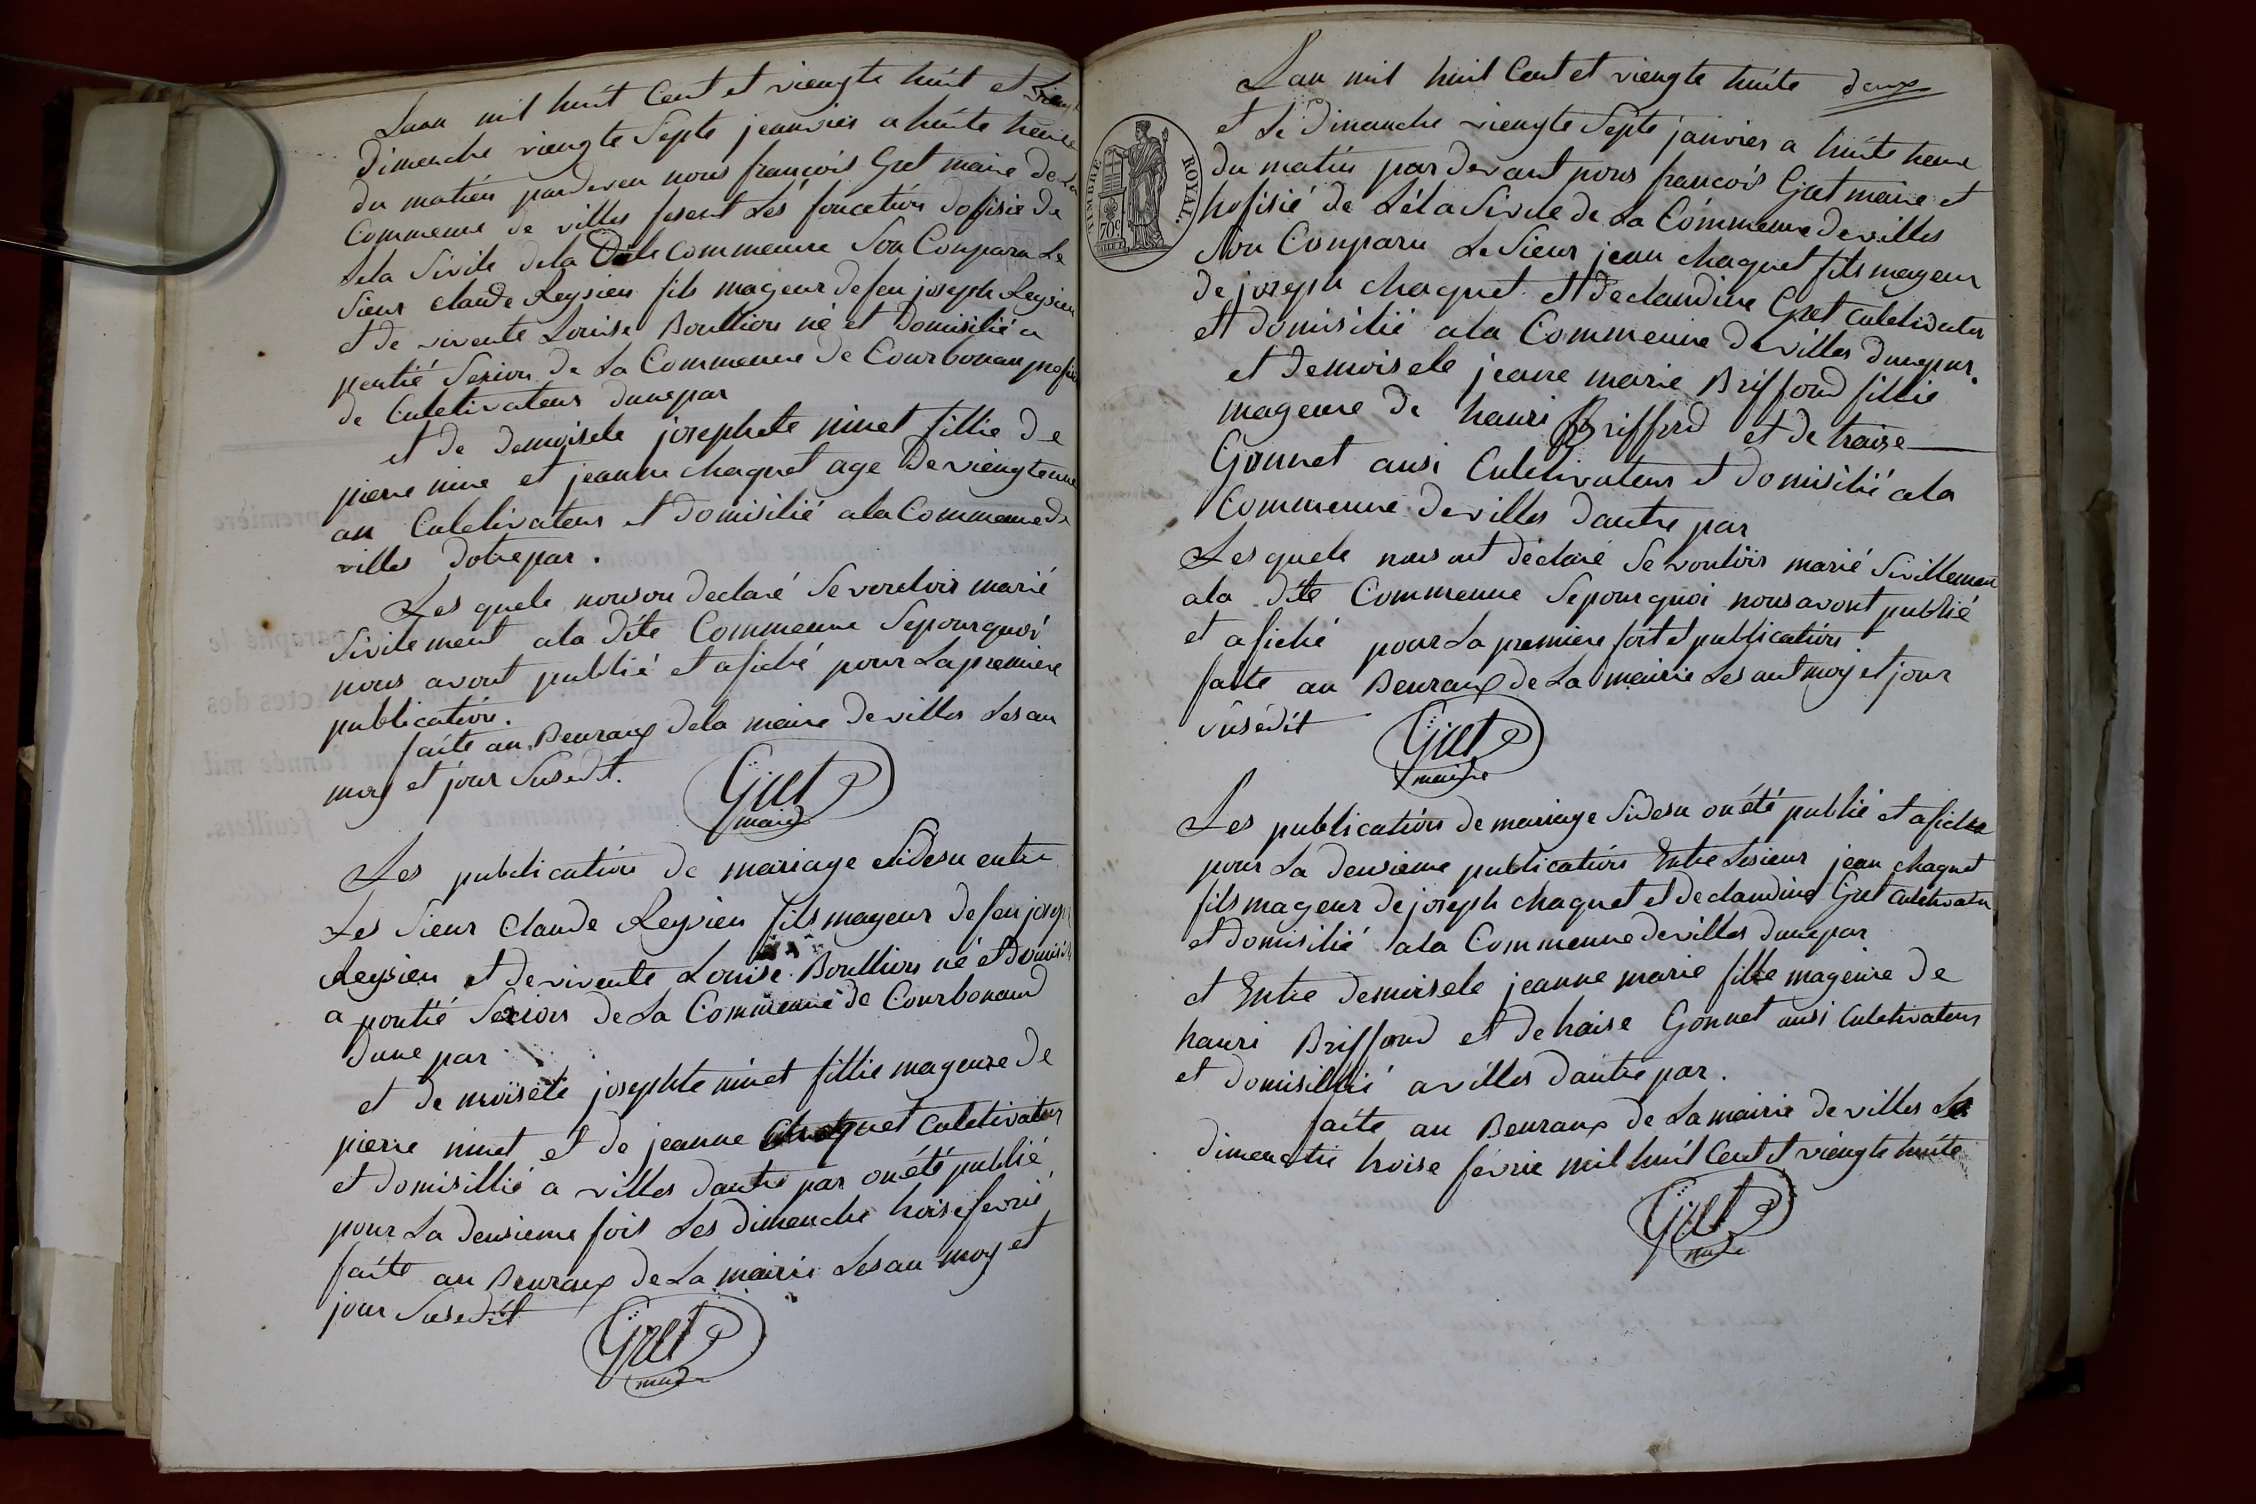 Lan mil huit Cent et viengte huit et
dimenche viengte Septe jeanvier a huite heure
du matien pardeven nous francois Gret maire de La
Commeune de villes fesent Les foncetion dofisie de
Leta Sivile dela Dite commeune Son Conparu Le
Sieur claude Reysien fils mageur de feu joseph Reysien
et de vivente Louise Boullion né et domisilié a
pontié Sexion de La Commeune de Courbonau
de Culetivateur dunepar
et de demoisele josephete ninet fillie de
pierre nine et jeanne chaquet age de viengte
an Culetivateur et domisilié ala Commeune de
villes dotrepar.
Les quele nouson declaré Sevouloir marié
Sivilement ala dite Commeune Sepourquoi
nous avont publié et afiché pour La premiere
publication.
faite au Beuraux dela maire de villes Les an
moy et jour Susedit.
Gret
maire
Les publication de mariage Sidesu entre
Les Sieur Claude Reysien fils mageur de feu joseph
Reysien et de vivente Louise Boullion né et domisi
a pontié Sexion de La Commeune de Courbonaud
dune par
et de moisele josephte ninet fillie mageure de
pierre ninet et de jeanne chaquet Culetivateur
et domisillié a villes dautre par on été publié
pour La deusieme fois Les dimenche troise fevrié
faite au Beuraux de La mairie Les au moy et
jour Susedit
Gret
maire
deux
Lan mil huit Cent et viengte huite
et Le Dimanche viengte Septe janvier a huite heure
du matin par devant nous francois Gret maire et
hofisié de Léta Sivile de La Commeune de villes
Son Conparu Le Sieur jean chaquet fils mageur
de joseph chaquet et declaudine Gret Culetivateur
et domisilié ala Commeune de villes dunepar.
et demoisele jeanne marie Briffond fillie
mageure de hanri Briffond et de traise
Gonnet ausi Culetivateur et domisilié ala
Commeune de villes dautre par
Les quele nous ont déclaré Se vouloir marié Sivillement
ala dite Commeune Sepourquoi nous avont publié
et afiché pour La premiere foit et publication
faite au Beuraux de La mairie Les ant moy et jour
Susédit
Gret
maire
Les publication de mariage Sidesu on été publié et afiché
pour La deusieme publication Entre Lesieur jean chaquet
fils mageur de joseph chaquet et declaudine Gret Culetivateur
et domisilié ala Commeune de villes dunepar
et Entre demoisele jeanne marie fille mageure de
hanri Briffond et de traise Gonnet ausi Culetivateur
et domisillié a villes dautre par.
faite au Beuraux de La mairie de villes Le
dimenche troise fevrie mil huit Cent et viengte huite
Gret
maire
TIMBRE ROYAL.
70c